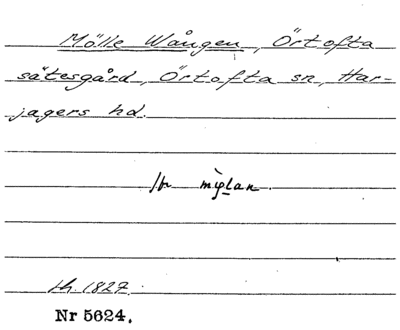 Mölle Wången, Örtofta
sätesgård, Örtofta sn, Har-
jagers hd.
mỳlan.
1827.
Nr 5624.